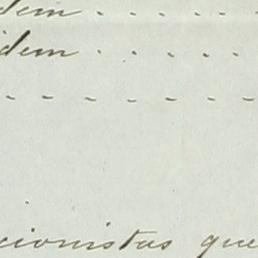 idem . . . . .
idem . . . . .
- - - - - - -
cionistas que